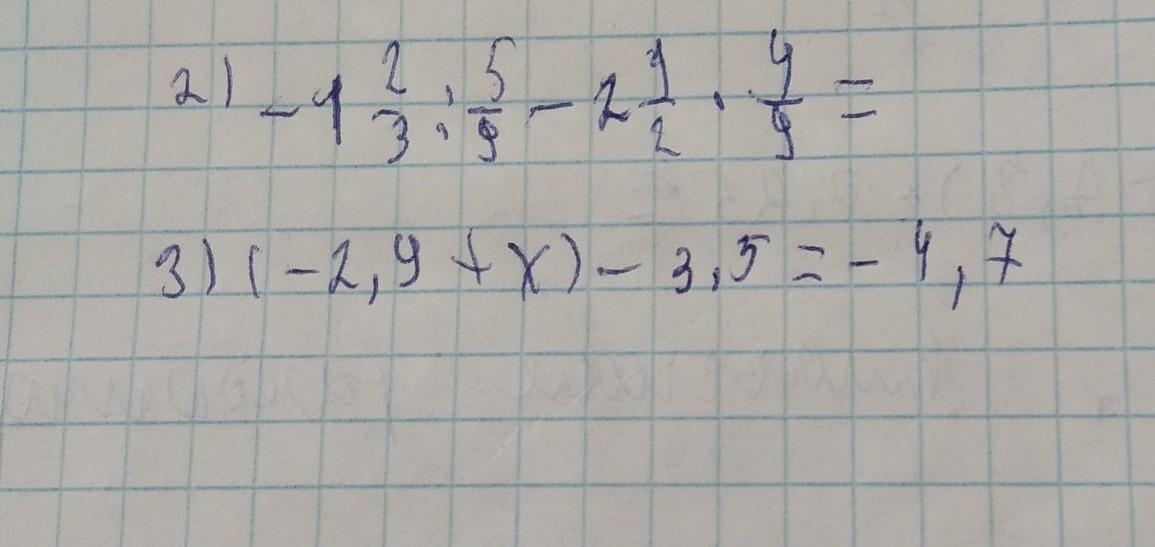 2) -1 2/3 : 5/9 - 2 1/2 · 4/9 =
3) (-2,9 + x) - 3,5 = -4,7